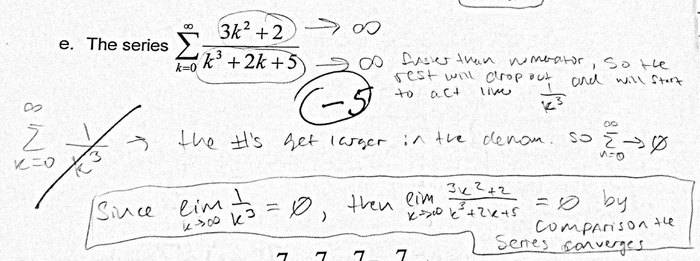 e. The series ∑ k=0 ∞ (3k² + 2)/(k³ + 2k + 5) → ∞
→ ∞ faster than numerator, so the
rest will drop out and will start
to act like 1/k³
-5
∑ k=0 ∞ 1/k³ → the #'s get larger in the denom. so ∑ n=0 ∞ → ∅
Since lim k→∞ 1/k³ = ∅, then lim k→∞ (3k²+2)/(k³+2k+5) = ∅ by
comparison the
series converges
7 7 7 7